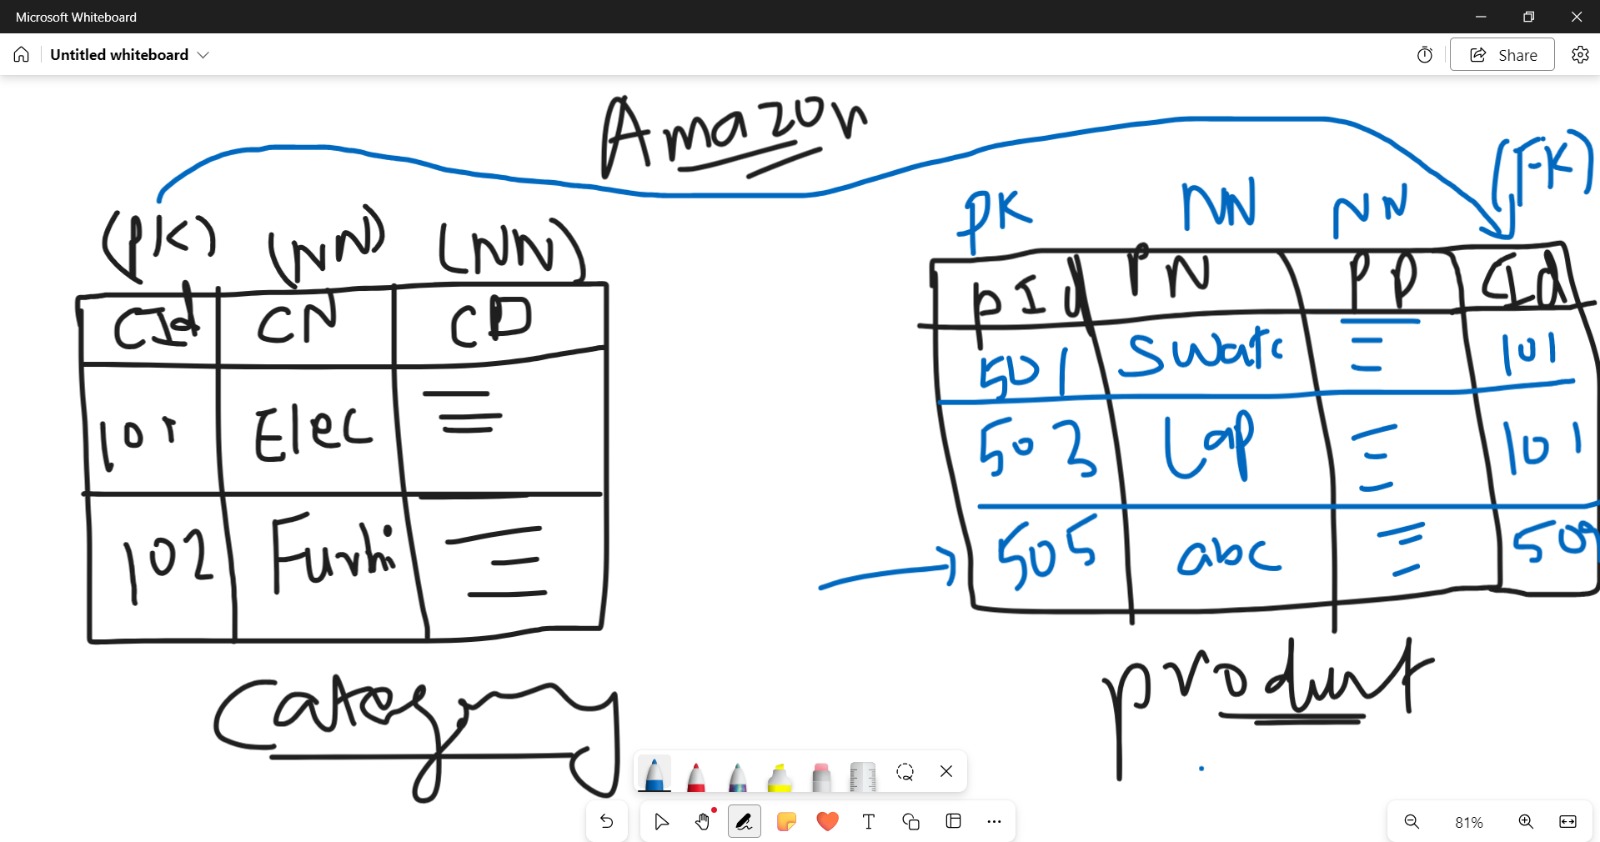 Microsoft Whiteboard
Untitled whiteboard
Share
Amazon
(PK) (NN) (NN)
CId CN CD
101 Elec
102
Category
PK NN NN (FK)
PId PN PP CId
501 Swatc 101
503 Lap 101
505 abc 509
product
81%